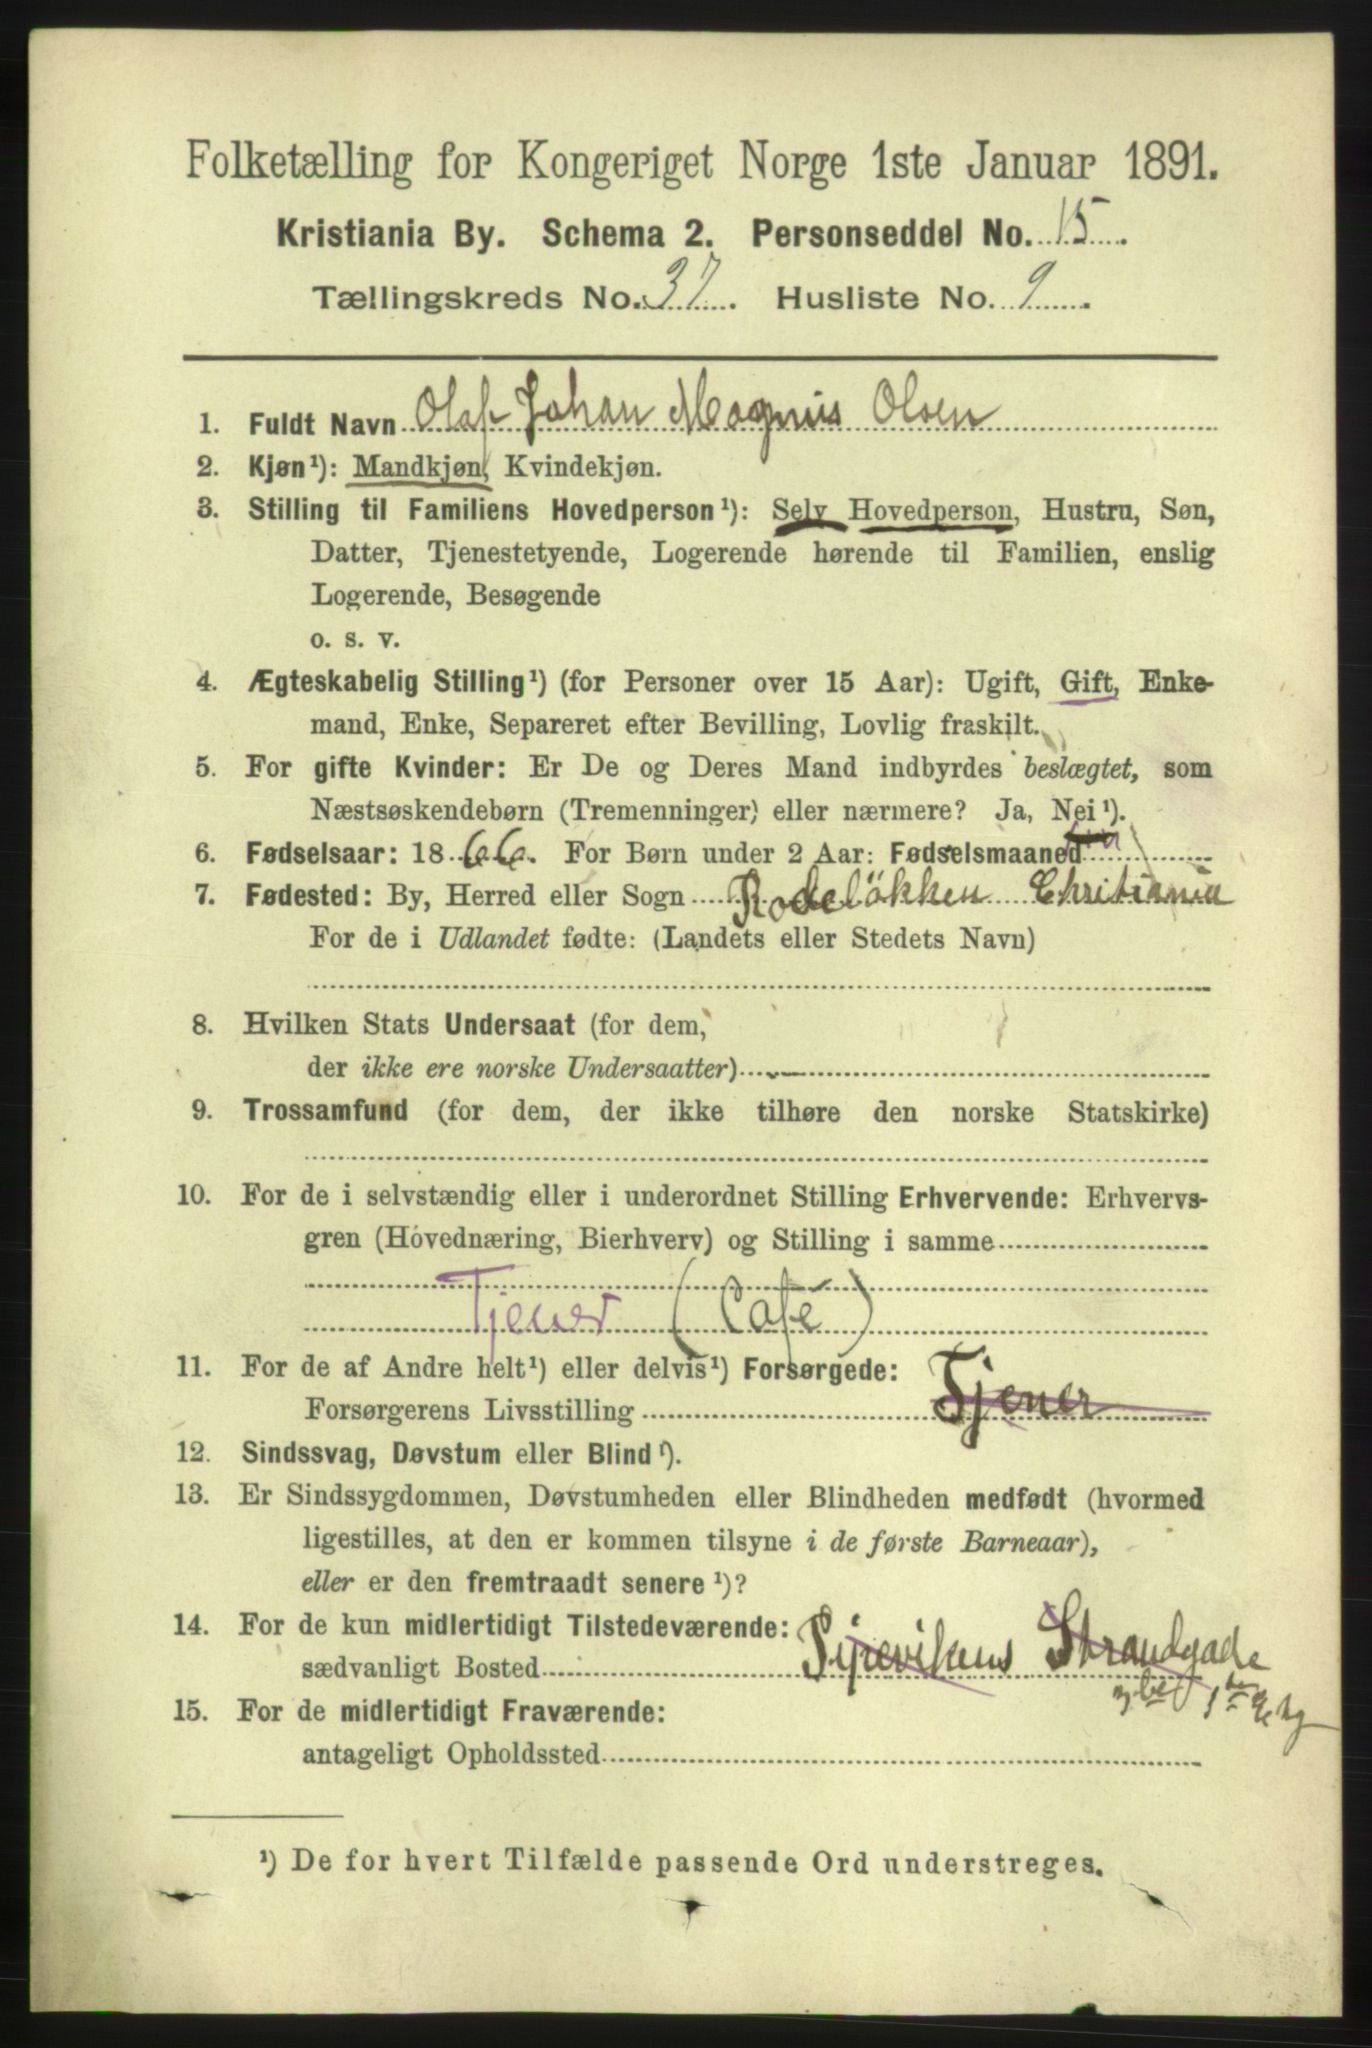 Folketælling for Kongeriget Norge 1ste Januar 1891.
Kristiania By. Schema 2. Personseddel No. 15.
Tællingskreds No. 37. Husliste No. 9.
1. Fuldt Navn Olaf Johan Magnus Olsen
2. Kjøn¹): Mandkjøn, Kvindekjøn.
3. Stilling til Familiens Hovedperson¹): Selv Hovedperson, Hustru, Søn,
Datter, Tjenestetyende, Logerende hørende til Familien, enslig
Logerende, Besøgende
o. s. v.
4. Ægteskabelig Stilling¹) (for Personer over 15 Aar): Ugift, Gift, Enke-
mand, Enke, Separeret efter Bevilling, Lovlig fraskilt.
5. For gifte Kvinder: Er De og Deres Mand indbyrdes beslægtet, som
Næstsøskendebørn (Tremenninger) eller nærmere? Ja, Nei¹).
6. Fødselsaar: 1866. For Børn under 2 Aar: Fødselsmaaned
7. Fødested: By, Herred eller Sogn Rodeløkken Chritiania
For de i Udlandet fødte: (Landets eller Stedets Navn)
8. Hvilken Stats Undersaat (for dem,
der ikke ere norske Undersaatter)
9. Trossamfund (for dem, der ikke tilhøre den norske Statskirke)
10. For de i selvstændig eller i underordnet Stilling Erhvervende: Erhvervs-
gren (Hovednæring, Bierhverv) og Stilling i samme
Tjener (Café)
11. For de af Andre helt¹) eller delvis¹) Forsørgede:
Forsørgerens Livsstilling Tjener
12. Sindssvag, Døvstum eller Blind¹).
13. Er Sindssygdommen, Døvstumheden eller Blindheden medfødt (hvormed
ligestilles, at den er kommen tilsyne i de første Barneaar),
eller er den fremtraadt senere¹)?
14. For de kun midlertidigt Tilstedeværende:
sædvanligt Bosted Pipevikens Strandgade
15. For de midlertidigt Fraværende:
antageligt Opholdssted
¹) De for hvert Tilfælde passende Ord understreges.